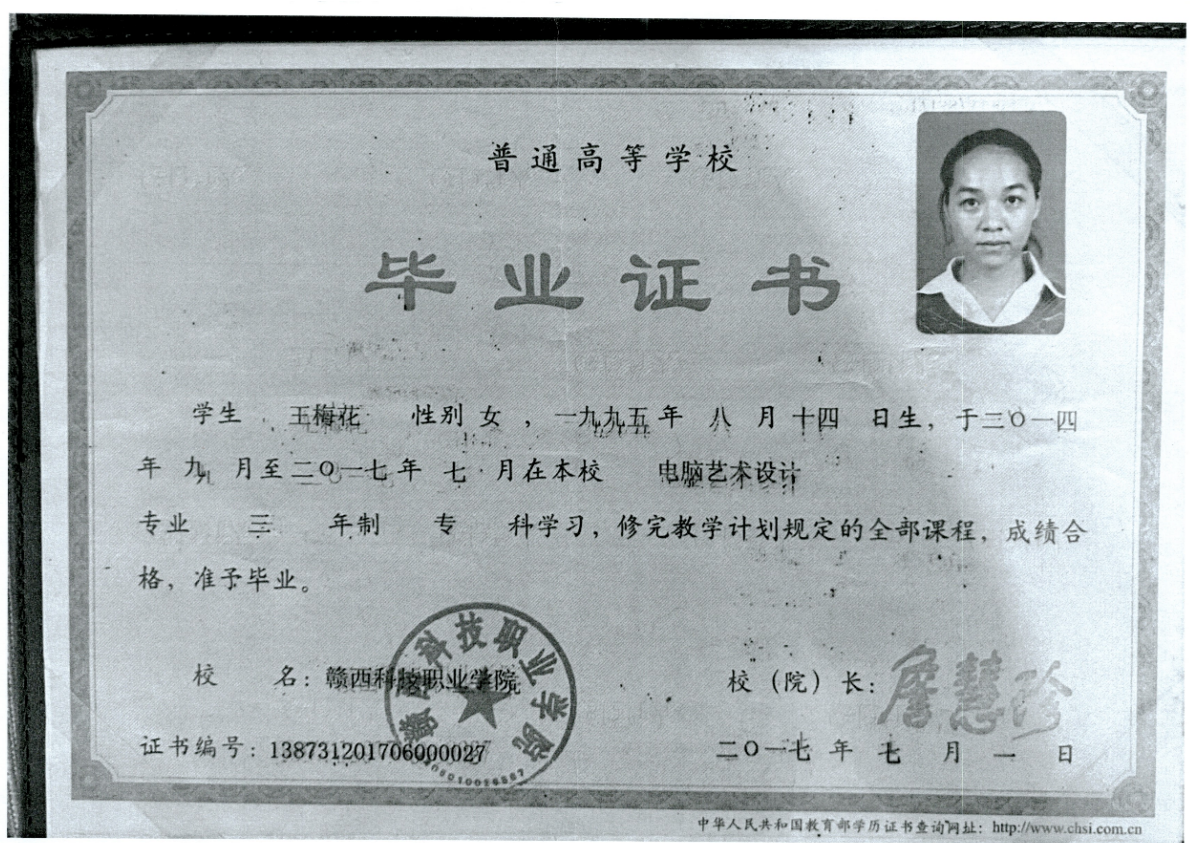 普通高等学校
毕业证书
学生 王梅花 性别 女 , 一九九五 年 八 月 十四 日生, 于二〇一四
年 九 月至二〇一七年 七 月在本校 电脑艺术设计
专业 三 年制 专 科学习, 修完教学计划规定的全部课程, 成绩合
格, 准予毕业。
校 名: 赣西科技职业学院
校（院）长: 詹慧珍
证书编号: 138731201706000027
二〇一七 年 七 月 一 日
赣西科技职业学院
中华人民共和国教育部学历证书查询网址: http://www.chsi.com.cn